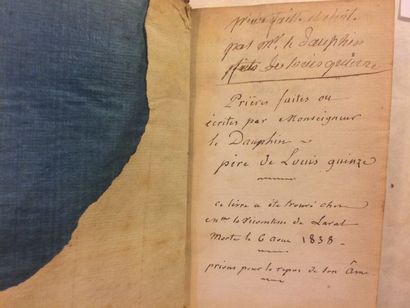 par Mr. le Dauphin
de Louis quinze
Prières faites ou
écrites par Monseigneur
le Dauphin
père de Louis quinze
ce livre a été trouvé chez
la Vicomtesse de Laval
Morte le 6 1838 -
prions pour le repos de son Âme